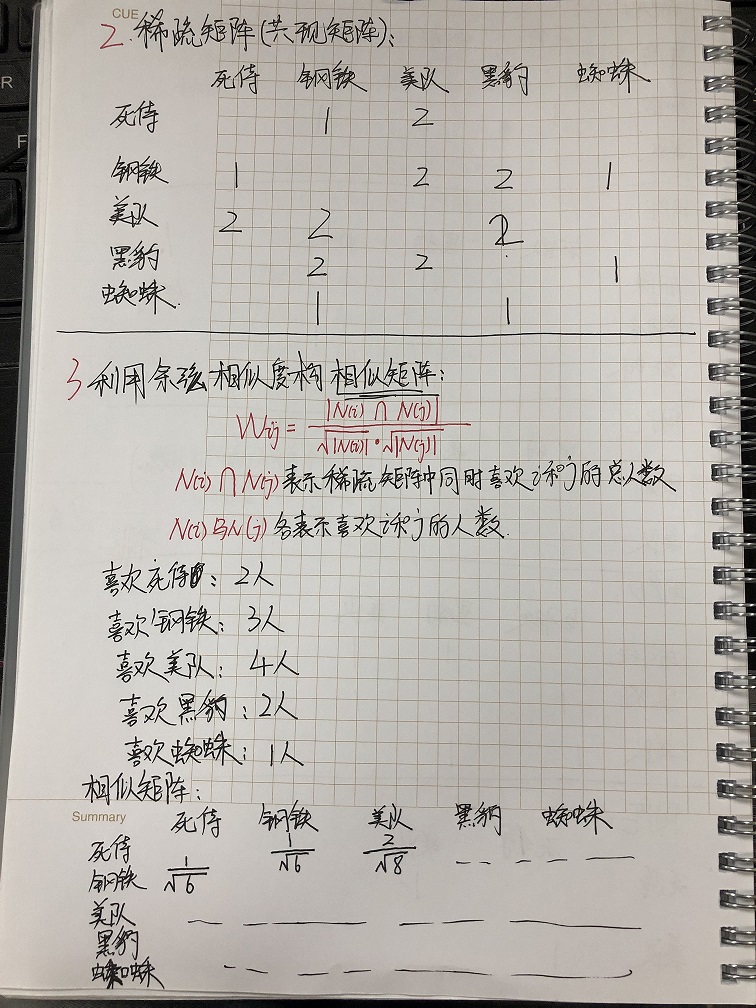 CUE
2.稀疏矩阵(共现矩阵):
死侍 钢铁 美队 黑豹 蜘蛛
死侍 1 2
钢铁 1 2 2 1
美队 2 2 2
黑豹 2 2 1
蜘蛛. 1 1
3 利用余弦相似度构相似矩阵:
Wij = |N(i)∩N(j)| / √|N(i)|·√|N(j)|
N(i)∩N(j)表示稀疏矩阵中同时喜欢i和j的总人数
N(i)与N(j)各表示喜欢i和j的人数.
喜欢死侍: 2人
喜欢钢铁: 3人
喜欢美队: 4人
喜欢黑豹: 2人
喜欢蜘蛛: 1人
相似矩阵:
Summary
死侍 钢铁 美队 黑豹 蜘蛛
死侍 1/√6 2/√8
钢铁 1/√6
美队
黑豹
蜘蛛